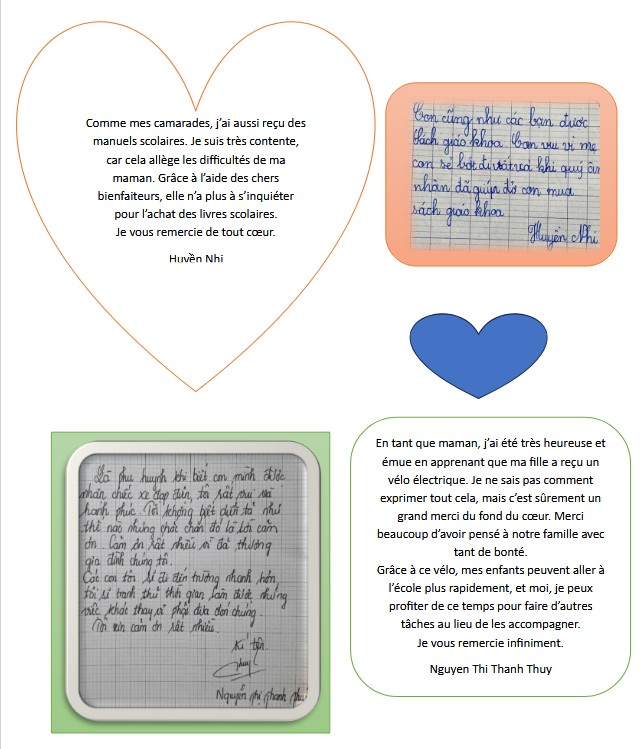 Comme mes camarades, j'ai aussi reçu des
manuels scolaires. Je suis très contente,
car cela allège les difficultés de ma
maman. Grâce à l'aide des chers
bienfaiteurs, elle n'a plus à s'inquiéter
pour l'achat des livres scolaires.
Je vous remercie de tout cœur.
Huyền Nhi
Con cũng như các bạn được
sách giáo khoa. Con vui vì mẹ
con sẽ bớt đi vất vả khi quý ân
nhân đã giúp đỡ con mua
sách giáo khoa
Huyền Nhi
Là phụ huynh khi biết con mình được
nhận chiếc xe đạp điện, tôi rất vui và
hạnh phúc. Tôi không biết diễn tả như
thế nào nhưng chắc chắn đó là lời cảm
ơn. Cảm ơn rất nhiều vì đã thương
gia đình chúng tôi.
Các con tôi sẽ đi đến trường nhanh hơn,
tôi sẽ tranh thủ thời gian làm được những
việc khác thay vì phải đưa đón chúng.
Tôi xin cảm ơn rất nhiều.
Kí tên
Thuy
Nguyễn Thị Thanh
En tant que maman, j'ai été très heureuse et
émue en apprenant que ma fille a reçu un
vélo électrique. Je ne sais pas comment
exprimer tout cela, mais c'est sûrement un
grand merci du fond du cœur. Merci
beaucoup d'avoir pensé à notre famille avec
tant de bonté.
Grâce à ce vélo, mes enfants peuvent aller à
l'école plus rapidement, et moi, je peux
profiter de ce temps pour faire d'autres
tâches au lieu de les accompagner.
Je vous remercie infiniment.
Nguyen Thi Thanh Thuy